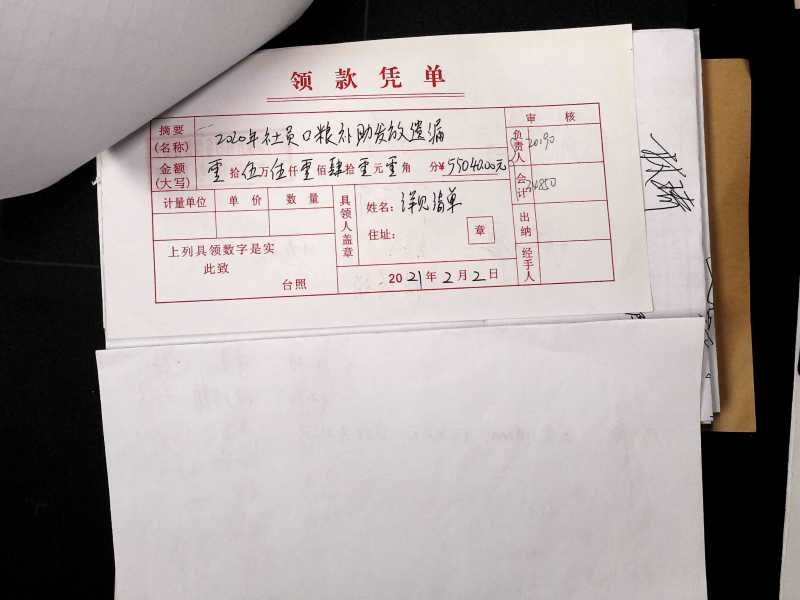 领款凭单
摘要(名称) 2020年社员口粮补助发放遗漏
审核
负责人 20190
金额(大写) 零拾伍万伍仟零佰肆拾零元零角 分¥55040.00元
会计 34850
计量单位 单价 数量
具领人盖章
姓名: 详见清单
住址: 章
出纳
上列具领数字是实
此致
台照
2021年2月2日
经手人